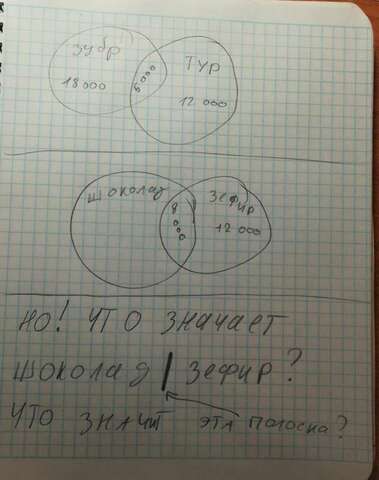 зубр
ТУР
5000
18000
12 000
шоколад
зефир
8000
12000
НО! ЧТО ЗНАЧАЕТ
ШОКОЛАД | ЗЕФИР?
ЧТО ЗНАЧИТ ЭТА ПОЛОСКА?